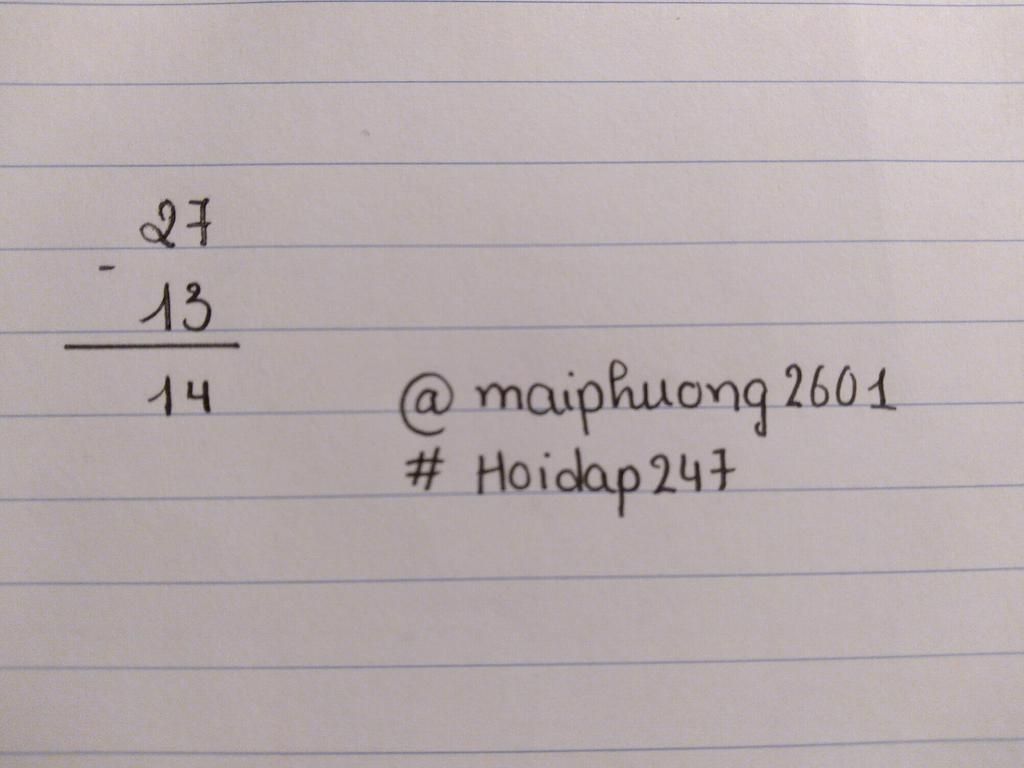 27
-
13
14
@ maiphuong2601
# Hoidap247